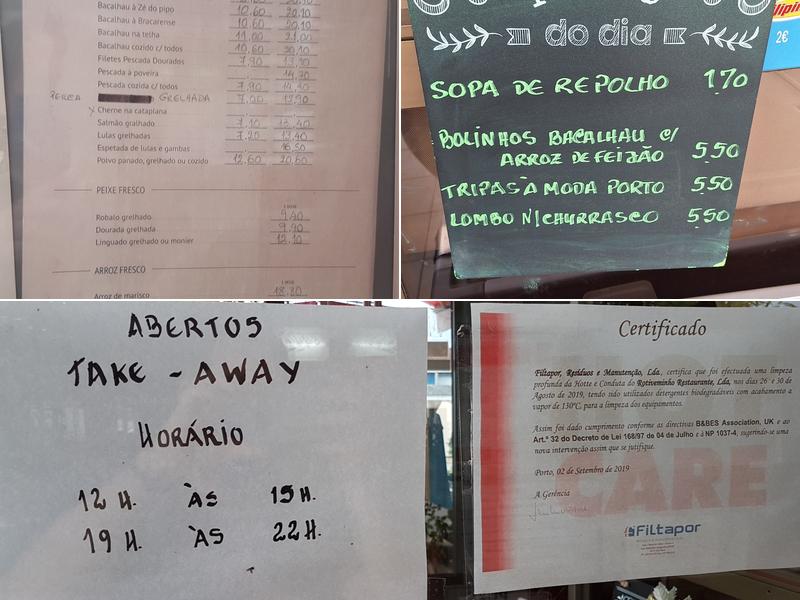 Bacalhau à Zé do pipo 10,60 20,10
Bacalhau à Bracarense 10,60 20,10
Bacalhau na telha 11,00 21,00
Bacalhau cozido c/ todos 10,60 20,10
Filetes Pescada Dourados 7,90 13,90
Pescada à poveira 14,70
Pescada cozida c/ todos 7,90 14,40
PERCA GRELHADA 7,00 12,90
x Cherne na cataplana
Salmão gralhado 7,10 13,40
Lulas grelhadas 7,20 13,40
Espetada de lulas e gambas 16,50
Polvo panado, grelhado ou cozido 12,60 20,60
PEIXE FRESCO
1 DOSE
Robalo grelhado 9,40
Dourada grelhada 9,90
Linguado grelhado ou monier 12,10
ARROZ FRESCO
Arroz de marisco 18,80
do dia
SOPA DE REPOLHO 1,70
BOLINHOS BACALHAU C/
ARROZ DE FEIJÃO 5,50
TRIPAS À MODA PORTO 5,50
LOMBO N/CHURRASCO 5,50
2€
ABERTOS
TAKE - AWAY
HORÁRIO
12 H. ÀS 15 H.
19 H. ÀS 22 H.
Certificado
Filtapor, Resíduos e Manutenção, Lda., certifica que foi efectuada uma limpeza
profunda da Hotte e Conduta do Rotiveminho Restaurante, Lda, nos dias 26 e 30 de
Agosto de 2019, tendo sido utilizados detergentes biodegradáveis com acabamento a
vapor de 130ºC, para a limpeza dos equipamentos.
Assim foi dado cumprimento conforme as directivas B&BES Association, UK e ao
Art.º 32 do Decreto de Lei 168/97 de 04 de Julho e à NP 1037-4, sugerindo-se uma
nova intervenção assim que se justifique.
Porto, 02 de Setembro de 2019
A Gerência
CARE
Filtapor